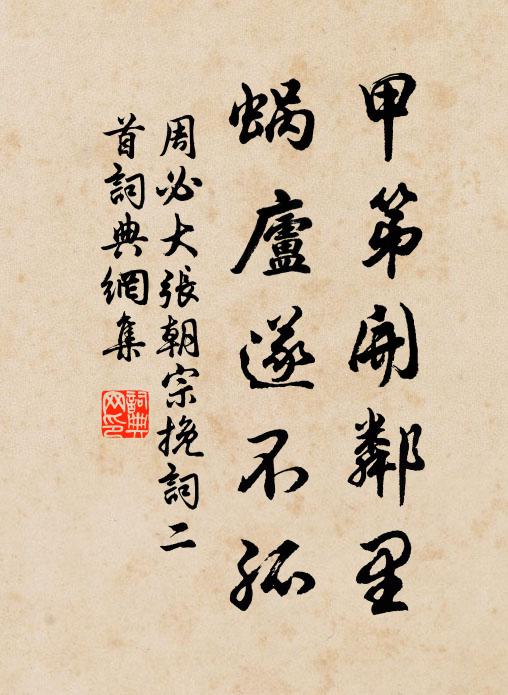 甲第開鄰里
蝸廬遂不孤
周必大張朝宗挽詞二
首詞典網集
詞典
网印